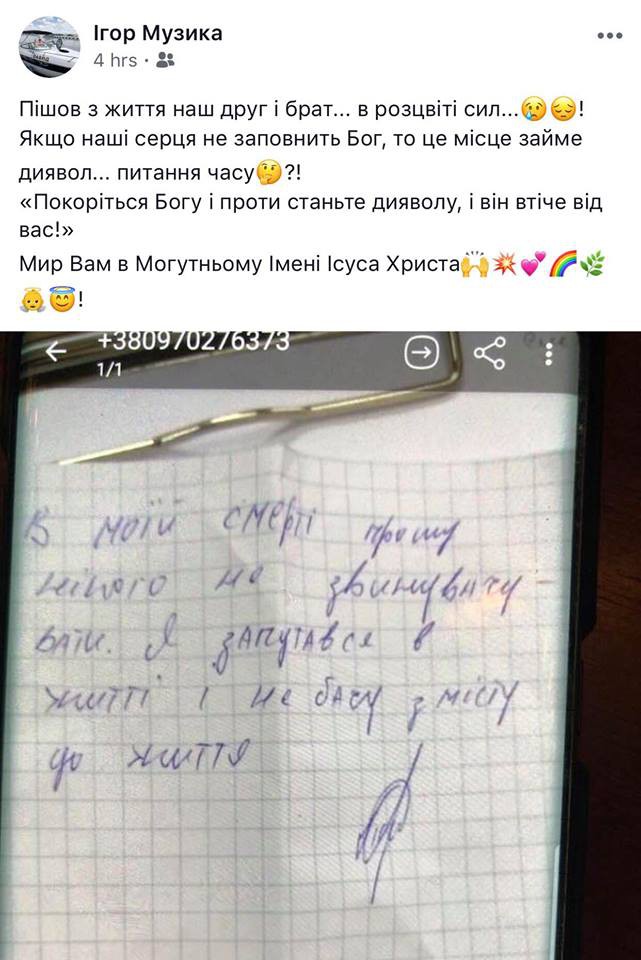 Ігор Музика
4 hrs ·
Пішов з життя наш друг і брат... в розцвіті сил...😢😔!
Якщо наші серця не заповнить Бог, то це місце займе
диявол... питання часу🤔?!
«Покоріться Богу і проти станьте дияволу, і він втіче від
вас!»
Мир Вам в Могутньому Імені Ісуса Христа🙌💥💕🌈🌿
👼😇!
+380970276373
1/1
В моїй смерті прошу
нікого не звинувачу-
вати. Я запутався в
житті і не бачу змісту
до життя